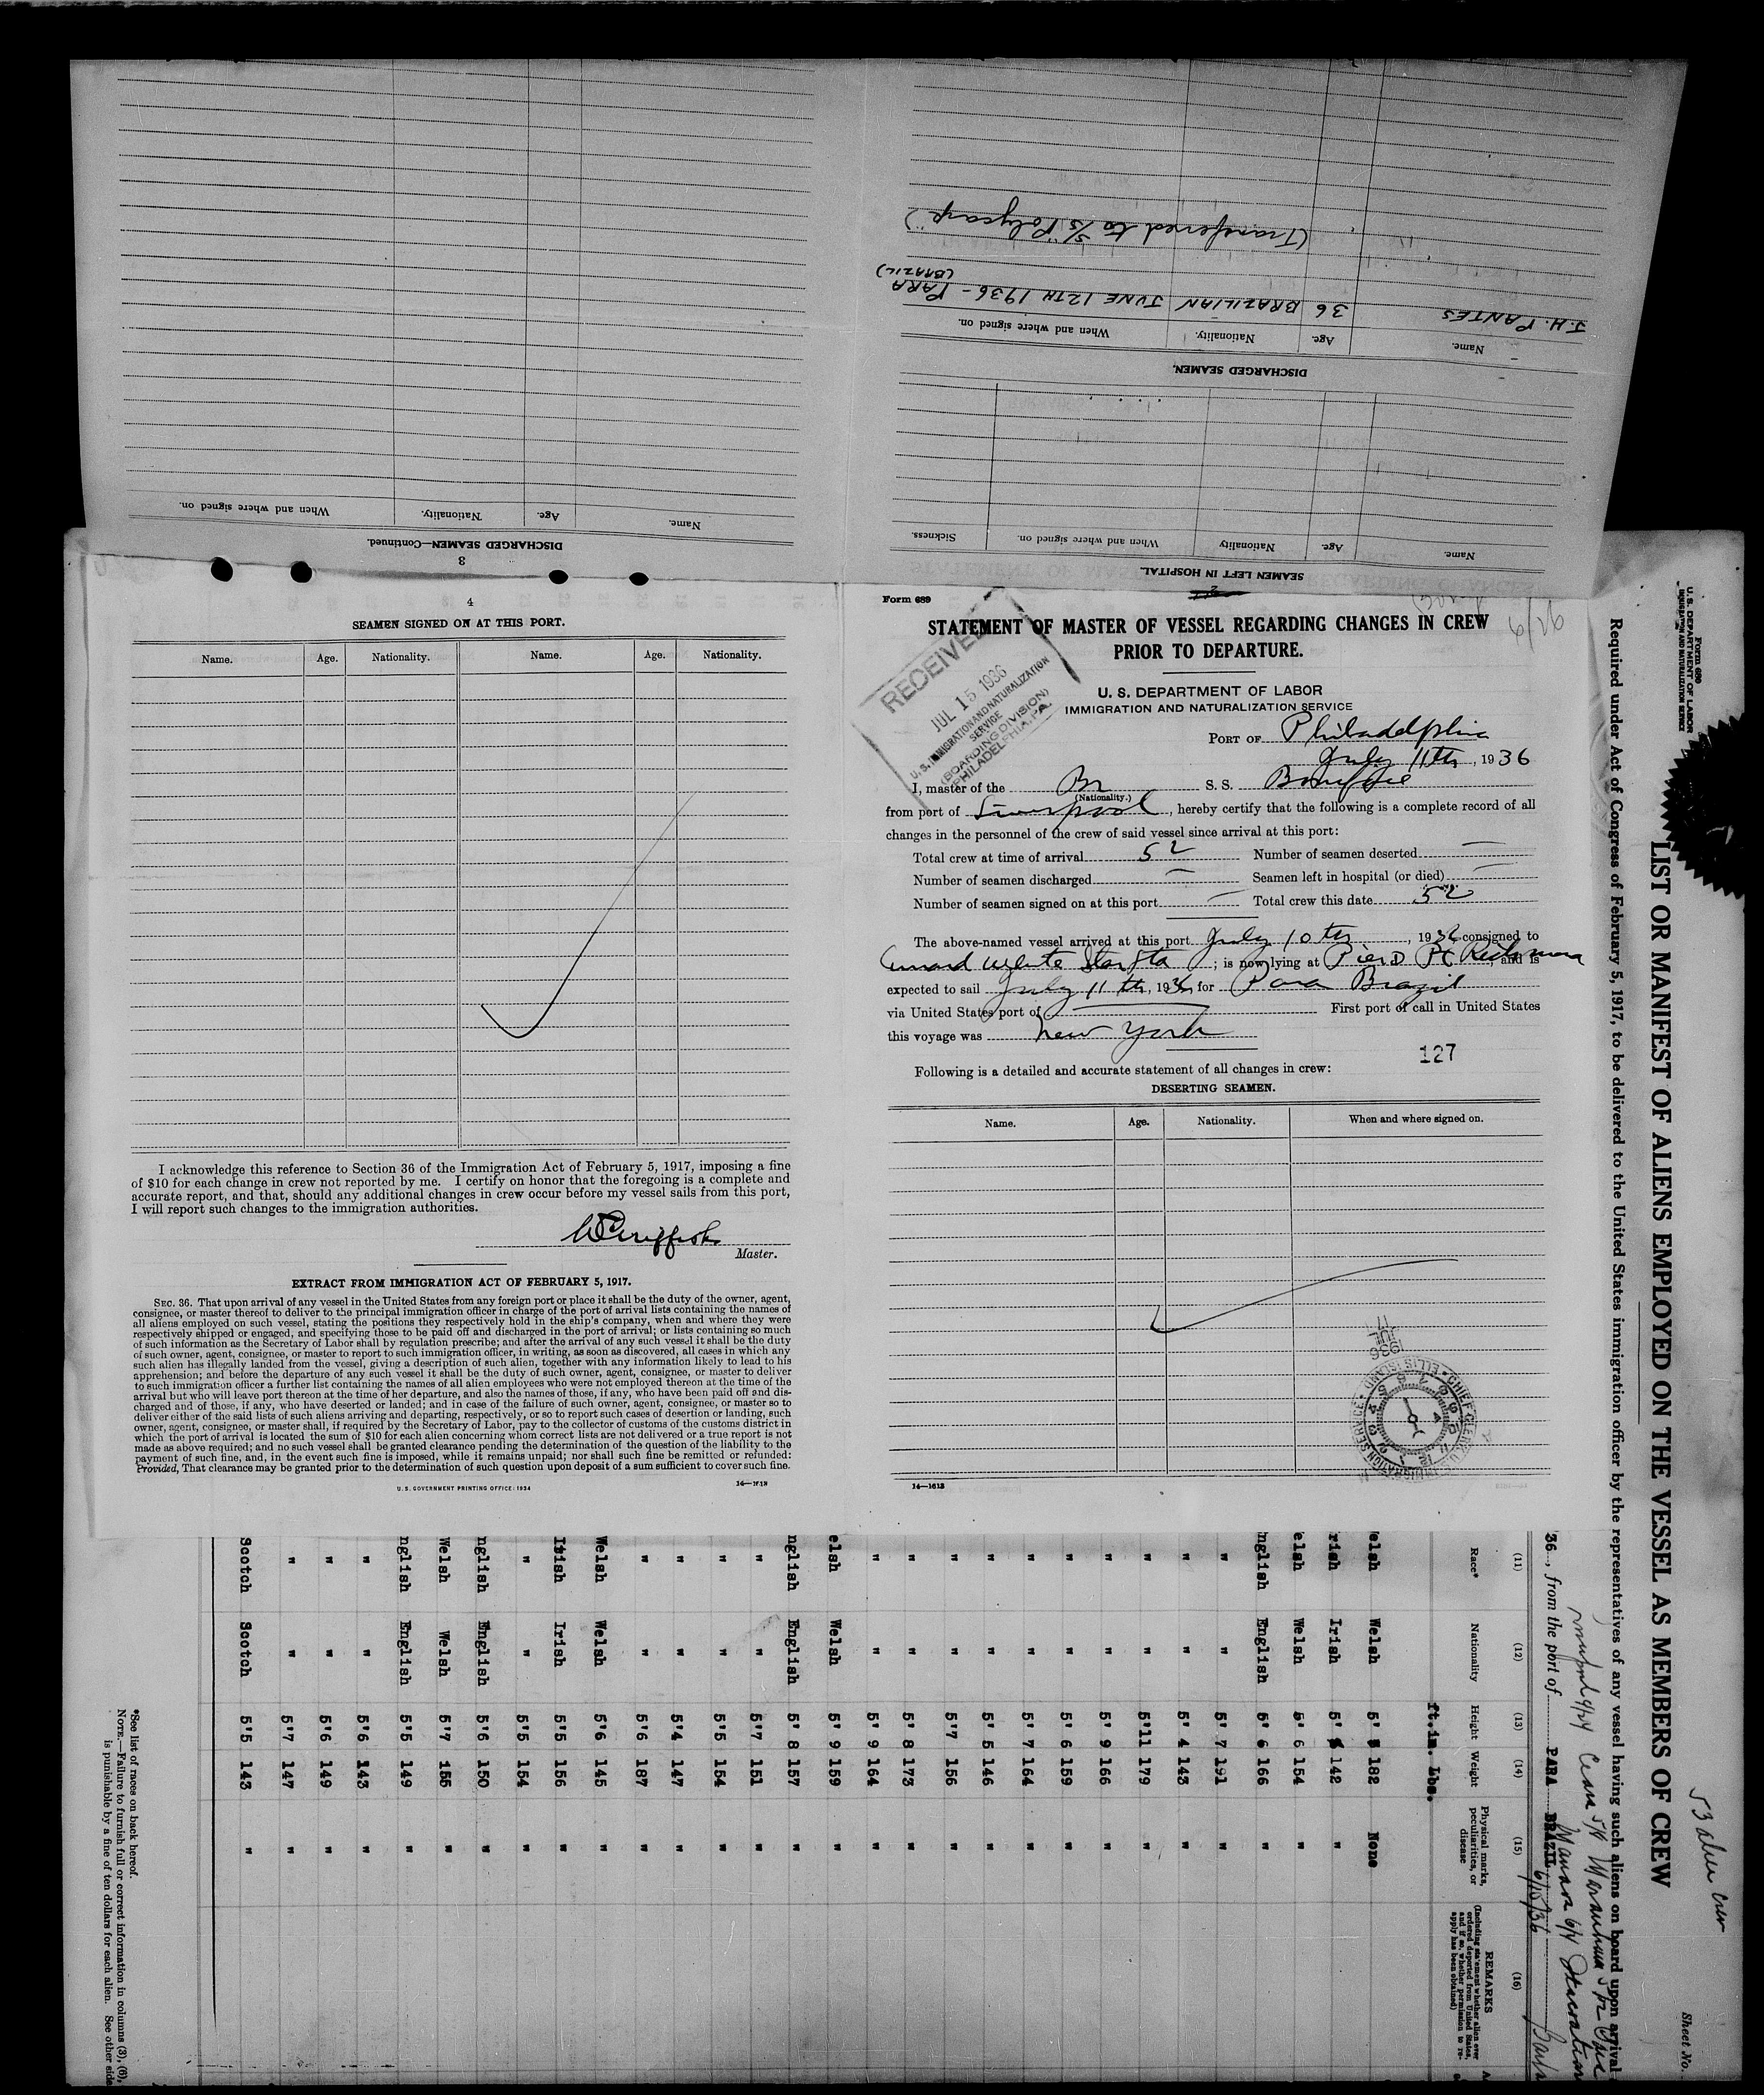 DISCHARGED SEAMEN—Continued.
3
Name.
Age.
Nationality.
When and where signed on.
SEAMEN LEFT IN HOSPITAL.
Name.
Age.
Nationality
When and where signed on.
Sickness.
DISCHARGED SEAMEN.
Name.
Age.
Nationality.
When and where signed on.
J.H. PANTES 36 BRAZILIAN JUNE 12TH 1936 - PARA
(BRAZIL)
(Transferred to S/S "Polycarp")
4
SEAMEN SIGNED ON AT THIS PORT.
Name. Age. Nationality. Name. Age. Nationality.
I acknowledge this reference to Section 36 of the Immigration Act of February 5, 1917, imposing a fine
of $10 for each change in crew not reported by me. I certify on honor that the foregoing is a complete and
accurate report, and that, should any additional changes in crew occur before my vessel sails from this port,
I will report such changes to the immigration authorities.
Master.
EXTRACT FROM IMMIGRATION ACT OF FEBRUARY 5, 1917.
SEC. 36. That upon arrival of any vessel in the United States from any foreign port or place it shall be the duty of the owner, agent,
consignee, or master thereof to deliver to the principal immigration officer in charge of the port of arrival lists containing the names of
all aliens employed on such vessel, stating the positions they respectively hold in the ship's company, when and where they were
respectively shipped or engaged, and specifying those to be paid off and discharged in the port of arrival; or lists containing so much
of such information as the Secretary of Labor shall by regulation prescribe; and after the arrival of any such vessel it shall be the duty
of such owner, agent, consignee, or master to report to such immigration officer, in writing, as soon as discovered, all cases in which any
such alien has illegally landed from the vessel, giving a description of such alien, together with any information likely to lead to his
apprehension; and before the departure of any such vessel it shall be the duty of such owner, agent, consignee, or master to deliver
to such immigration officer a further list containing the names of all alien employees who were not employed thereon at the time of the
arrival but who will leave port thereon at the time of her departure, and also the names of those, if any, who have been paid off and dis-
charged and of those, if any, who have deserted or landed; and in case of the failure of such owner, agent, consignee, or master so to
deliver either of the said lists of such aliens arriving and departing, respectively, or so to report such cases of desertion or landing, such
owner, agent, consignee, or master shall, if required by the Secretary of Labor, pay to the collector of customs of the customs district in
which the port of arrival is located the sum of $10 for each alien concerning whom correct lists are not delivered or a true report is not
made as above required; and no such vessel shall be granted clearance pending the determination of the question of the liability to the
payment of such fine, and, in the event such fine is imposed, while it remains unpaid; nor shall such fine be remitted or refunded:
Provided, That clearance may be granted prior to the determination of such question upon deposit of a sum sufficient to cover such fine.
U. S. GOVERNMENT PRINTING OFFICE: 1934
Form 689
6/26
STATEMENT OF MASTER OF VESSEL REGARDING CHANGES IN CREW
PRIOR TO DEPARTURE.
RECEIVED
JUL 15 1936
U.S. IMMIGRATION AND NATURALIZATION
SERVICE
(BOARDING DIVISION)
PHILADELPHIA, PA.
U. S. DEPARTMENT OF LABOR
IMMIGRATION AND NATURALIZATION SERVICE
PORT OF Philadelphia
July 11th, 1936
I, master of the Br S. S. Boniface
(Nationality.)
from port of Liverpool, hereby certify that the following is a complete record of all
changes in the personnel of the crew of said vessel since arrival at this port:
Total crew at time of arrival 52 Number of seamen deserted —
Number of seamen discharged — Seamen left in hospital (or died) —
Number of seamen signed on at this port — Total crew this date 52
The above-named vessel arrived at this port July 10th, 1936 consigned to
Cunard White Star Ltd; is now lying at Pier D Pt Richmond, and is
expected to sail July 11th, 1936 for Para Brazil
via United States port of — First port of call in United States
this voyage was New York
127
Following is a detailed and accurate statement of all changes in crew:
DESERTING SEAMEN.
Name. Age. Nationality. When and where signed on.
1936
CHIEF CLERK U.S. IMMIGRATION SERVICE ELLIS ISLAND
14—1613
Form 689
U. S. DEPARTMENT OF LABOR
IMMIGRATION AND NATURALIZATION SERVICE
53 alien crew
Sheet No.
LIST OR MANIFEST OF ALIENS EMPLOYED ON THE VESSEL AS MEMBERS OF CREW
Required under Act of Congress of February 5, 1917, to be delivered to the United States immigration officer by the representatives of any vessel having such aliens on board upon arrival
36, from the port of PARA BRAZIL 6/15/36
(11) (12) (13) (14) (15) (16)
Race* Nationality Height Weight Physical marks, peculiarities, or disease REMARKS
(Including statement whether alien ever ordered deported from United States, and if so, whether permission to reapply has been obtained)
ft.in. Lbs.
elsh Welsh 5' 182 None
rish Irish 5' 142 "
elsh Welsh 5' 6 154 "
nglish English 5' 6 166 "
" " 5' 7 191 "
" " 5' 4 143 "
" " 5'11 179 "
" " 5' 9 166 "
" " 5' 6 159 "
" " 5' 7 164 "
" " 5' 5 146 "
" " 5'7 156 "
" " 5' 8 173 "
" " 5' 9 164 "
elsh Welsh 5' 9 159 "
nglish English 5' 8 157 "
" " 5'7 151 "
" " 5'5 154 "
" " 5'4 147 "
" " 5'6 187 "
Welsh Welsh 5'6 145 "
Irish Irish 5'5 156 "
" " 5'5 154 "
nglish English 5'6 150 "
Welsh Welsh 5'7 155 "
nglish English 5'5 149 "
" " 5'6 143 "
" " 5'6 149 "
" " 5'7 147 "
Scotch Scotch 5'5 143 "
*See list of races on back hereof.
NOTE.—Failure to furnish full or correct information in columns (3), (6),
is punishable by a fine of ten dollars for each alien. See other side